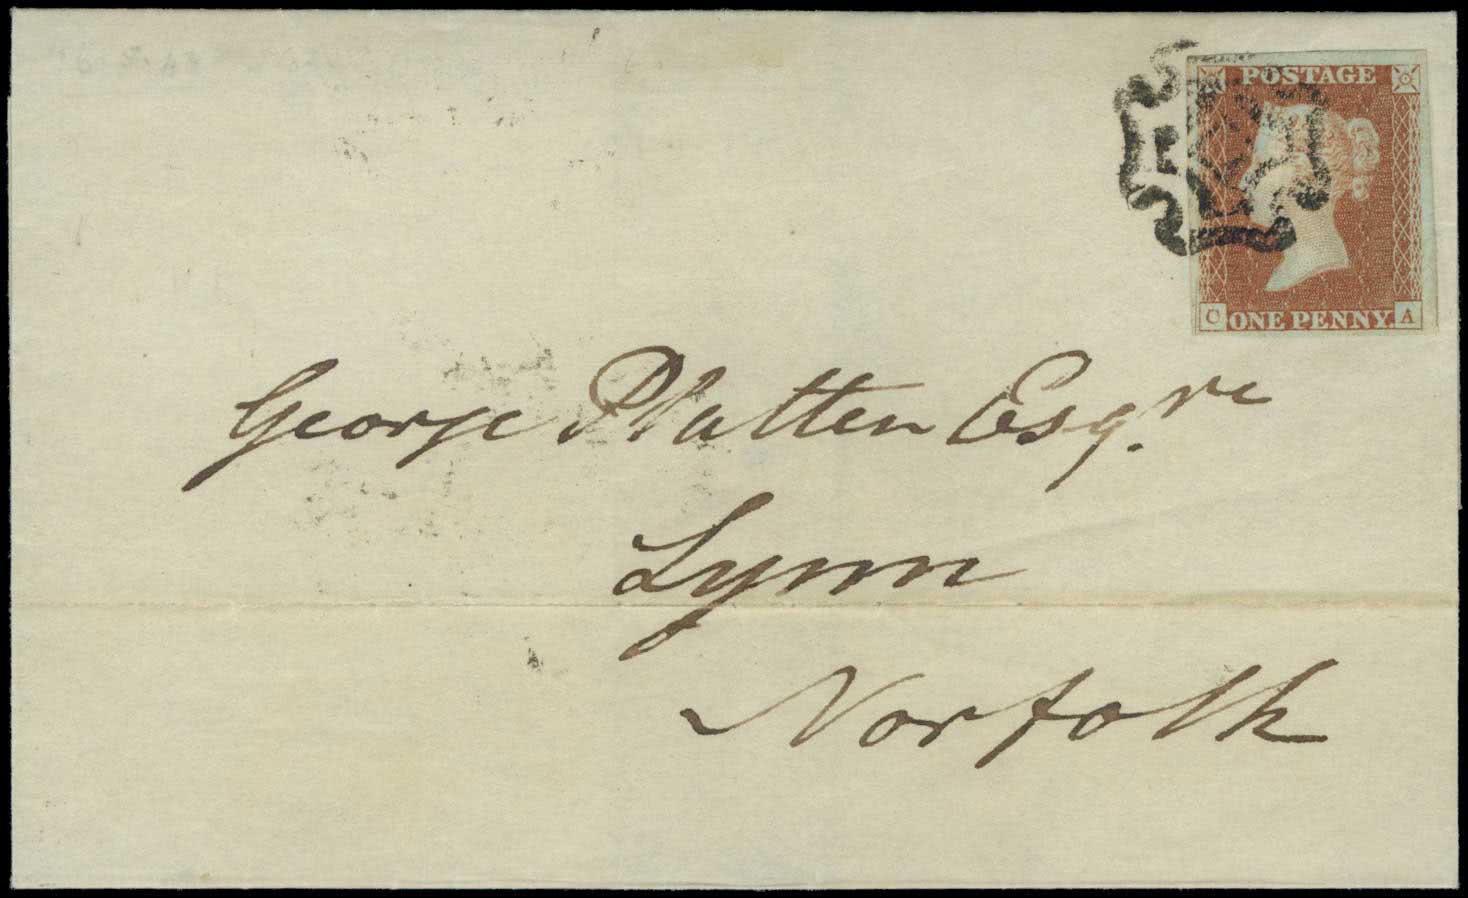 POSTAGE
C ONE PENNY. A
George Platten Esqre.
Lynn
Norfolk